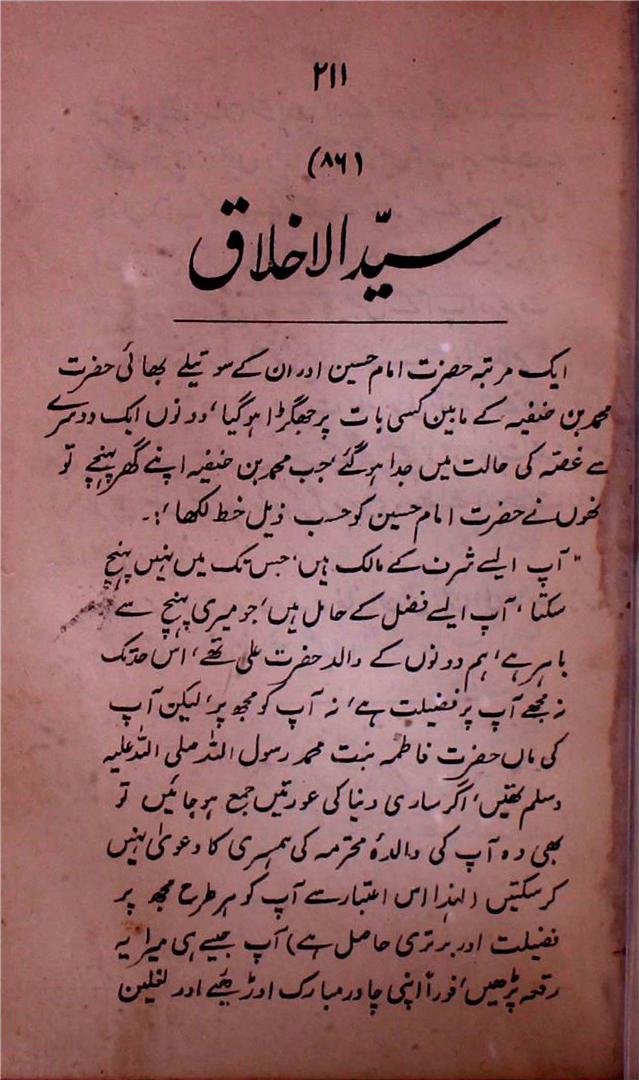 ۲۱۱
(۸۶)
سیّد الاخلاق
ایک مرتبہ حضرت امام حسین اور ان کے سوتیلے بھائی حضرت
محمد بن حنفیہ کے مابین کسی بات پر جھگڑا ہو گیا، دونوں ایک دوسرے
سے غصّہ کی حالت میں جدا ہو گئے، جب محمد بن حنفیہ اپنے گھر پہنچے تو
نھوں نے حضرت امام حسین کو حسب ذیل خط لکھا:۔
"آپ ایسے شرف کے مالک ہیں، جس تک میں نہیں پہنچ
سکتا، آپ ایسے فضل کے حامل ہیں، جو میری پہنچ سے
باہر ہے، ہم دونوں کے والد حضرت علی تھے، اس حد تک
نہ مجھے آپ پر فضیلت ہے، نہ آپ کو مجھ پر، لیکن آپ
کی ماں حضرت فاطمہ بنت محمد رسول اللہ صلی اللہ علیہ
وسلم تھیں، اگر ساری دنیا کی عورتیں جمع ہو جائیں تو
بھی وہ آپ کی والدۂ محترمہ کی ہمسری کا دعویٰ نہیں
کر سکتیں (لہٰذا اس اعتبار سے آپ کو ہر طرح مجھ پر
فضیلت اور برتری حاصل ہے) آپ جیسے ہی میرا یہ
رقعہ پڑھیں، فوراً اپنی چادر مبارک اوڑھیے اور نعلین